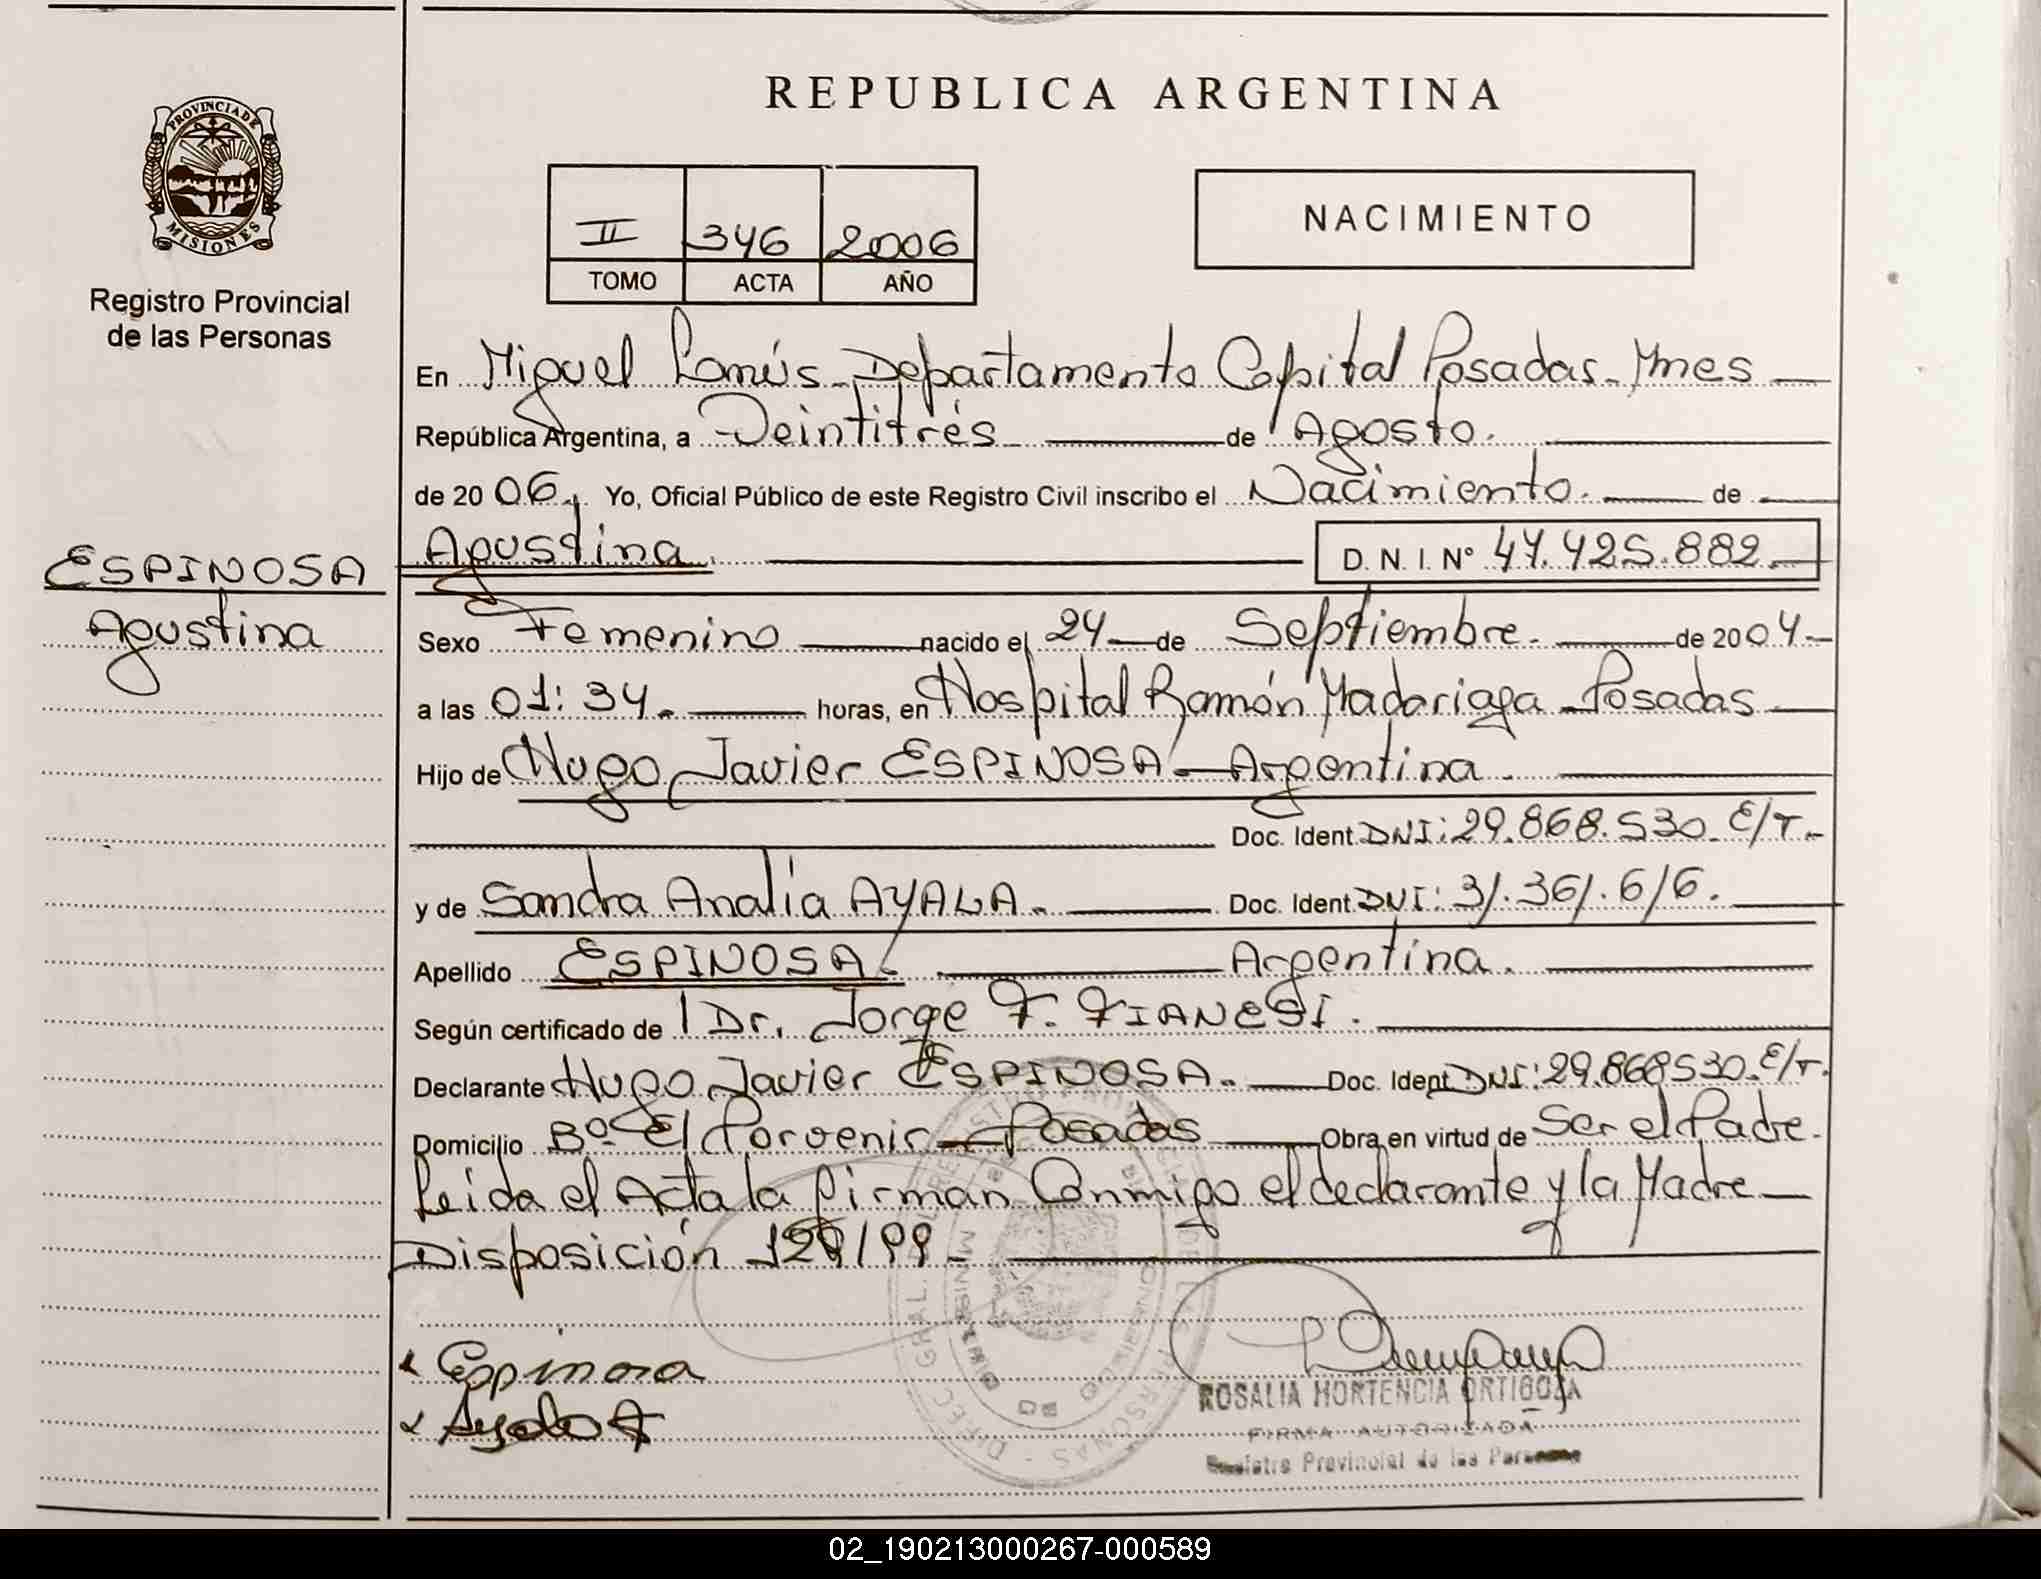 REPUBLICA ARGENTINA
PROVINCIA DE
MISIONES
Registro Provincial
de las Personas
II 346 2006
TOMO ACTA AÑO
NACIMIENTO
En Miguel Lanús - Departamento Capital Posadas - Mnes
República Argentina, a Veintitrés de Agosto.
de 2006, Yo, Oficial Público de este Registro Civil inscribo el Nacimiento. de
Agustina. D. N. I. Nº 47.425.882.
ESPINOSA
Agustina
Sexo Femenino nacido el 24 de Septiembre. de 2004
a las 01:34. horas, en Hospital Ramón Madariaga - Posadas
Hijo de Hugo Javier ESPINOSA - Argentina.
Doc. Ident. DNI: 29.868.530. E/T.
y de Sandra Analía AYALA. Doc. Ident. DNI: 31.361.616.
Apellido ESPINOSA. Argentina.
Según certificado de Dr. Jorge F. FIANESI.
Declarante Hugo Javier ESPINOSA. Doc. Ident. DNI: 29.868530. E/T.
Domicilio Bº El Porvenir - Posadas Obra en virtud de Ser el Padre.
Leida el Acta la firman Conmigo el declarante y la Madre
Disposición /99
Espinosa
Ayala A
ROSALIA HORTENCIA ORTIGOZA
FIRMA AUTORIZADA
Registro Provincial de las Personas
02_190213000267-000589